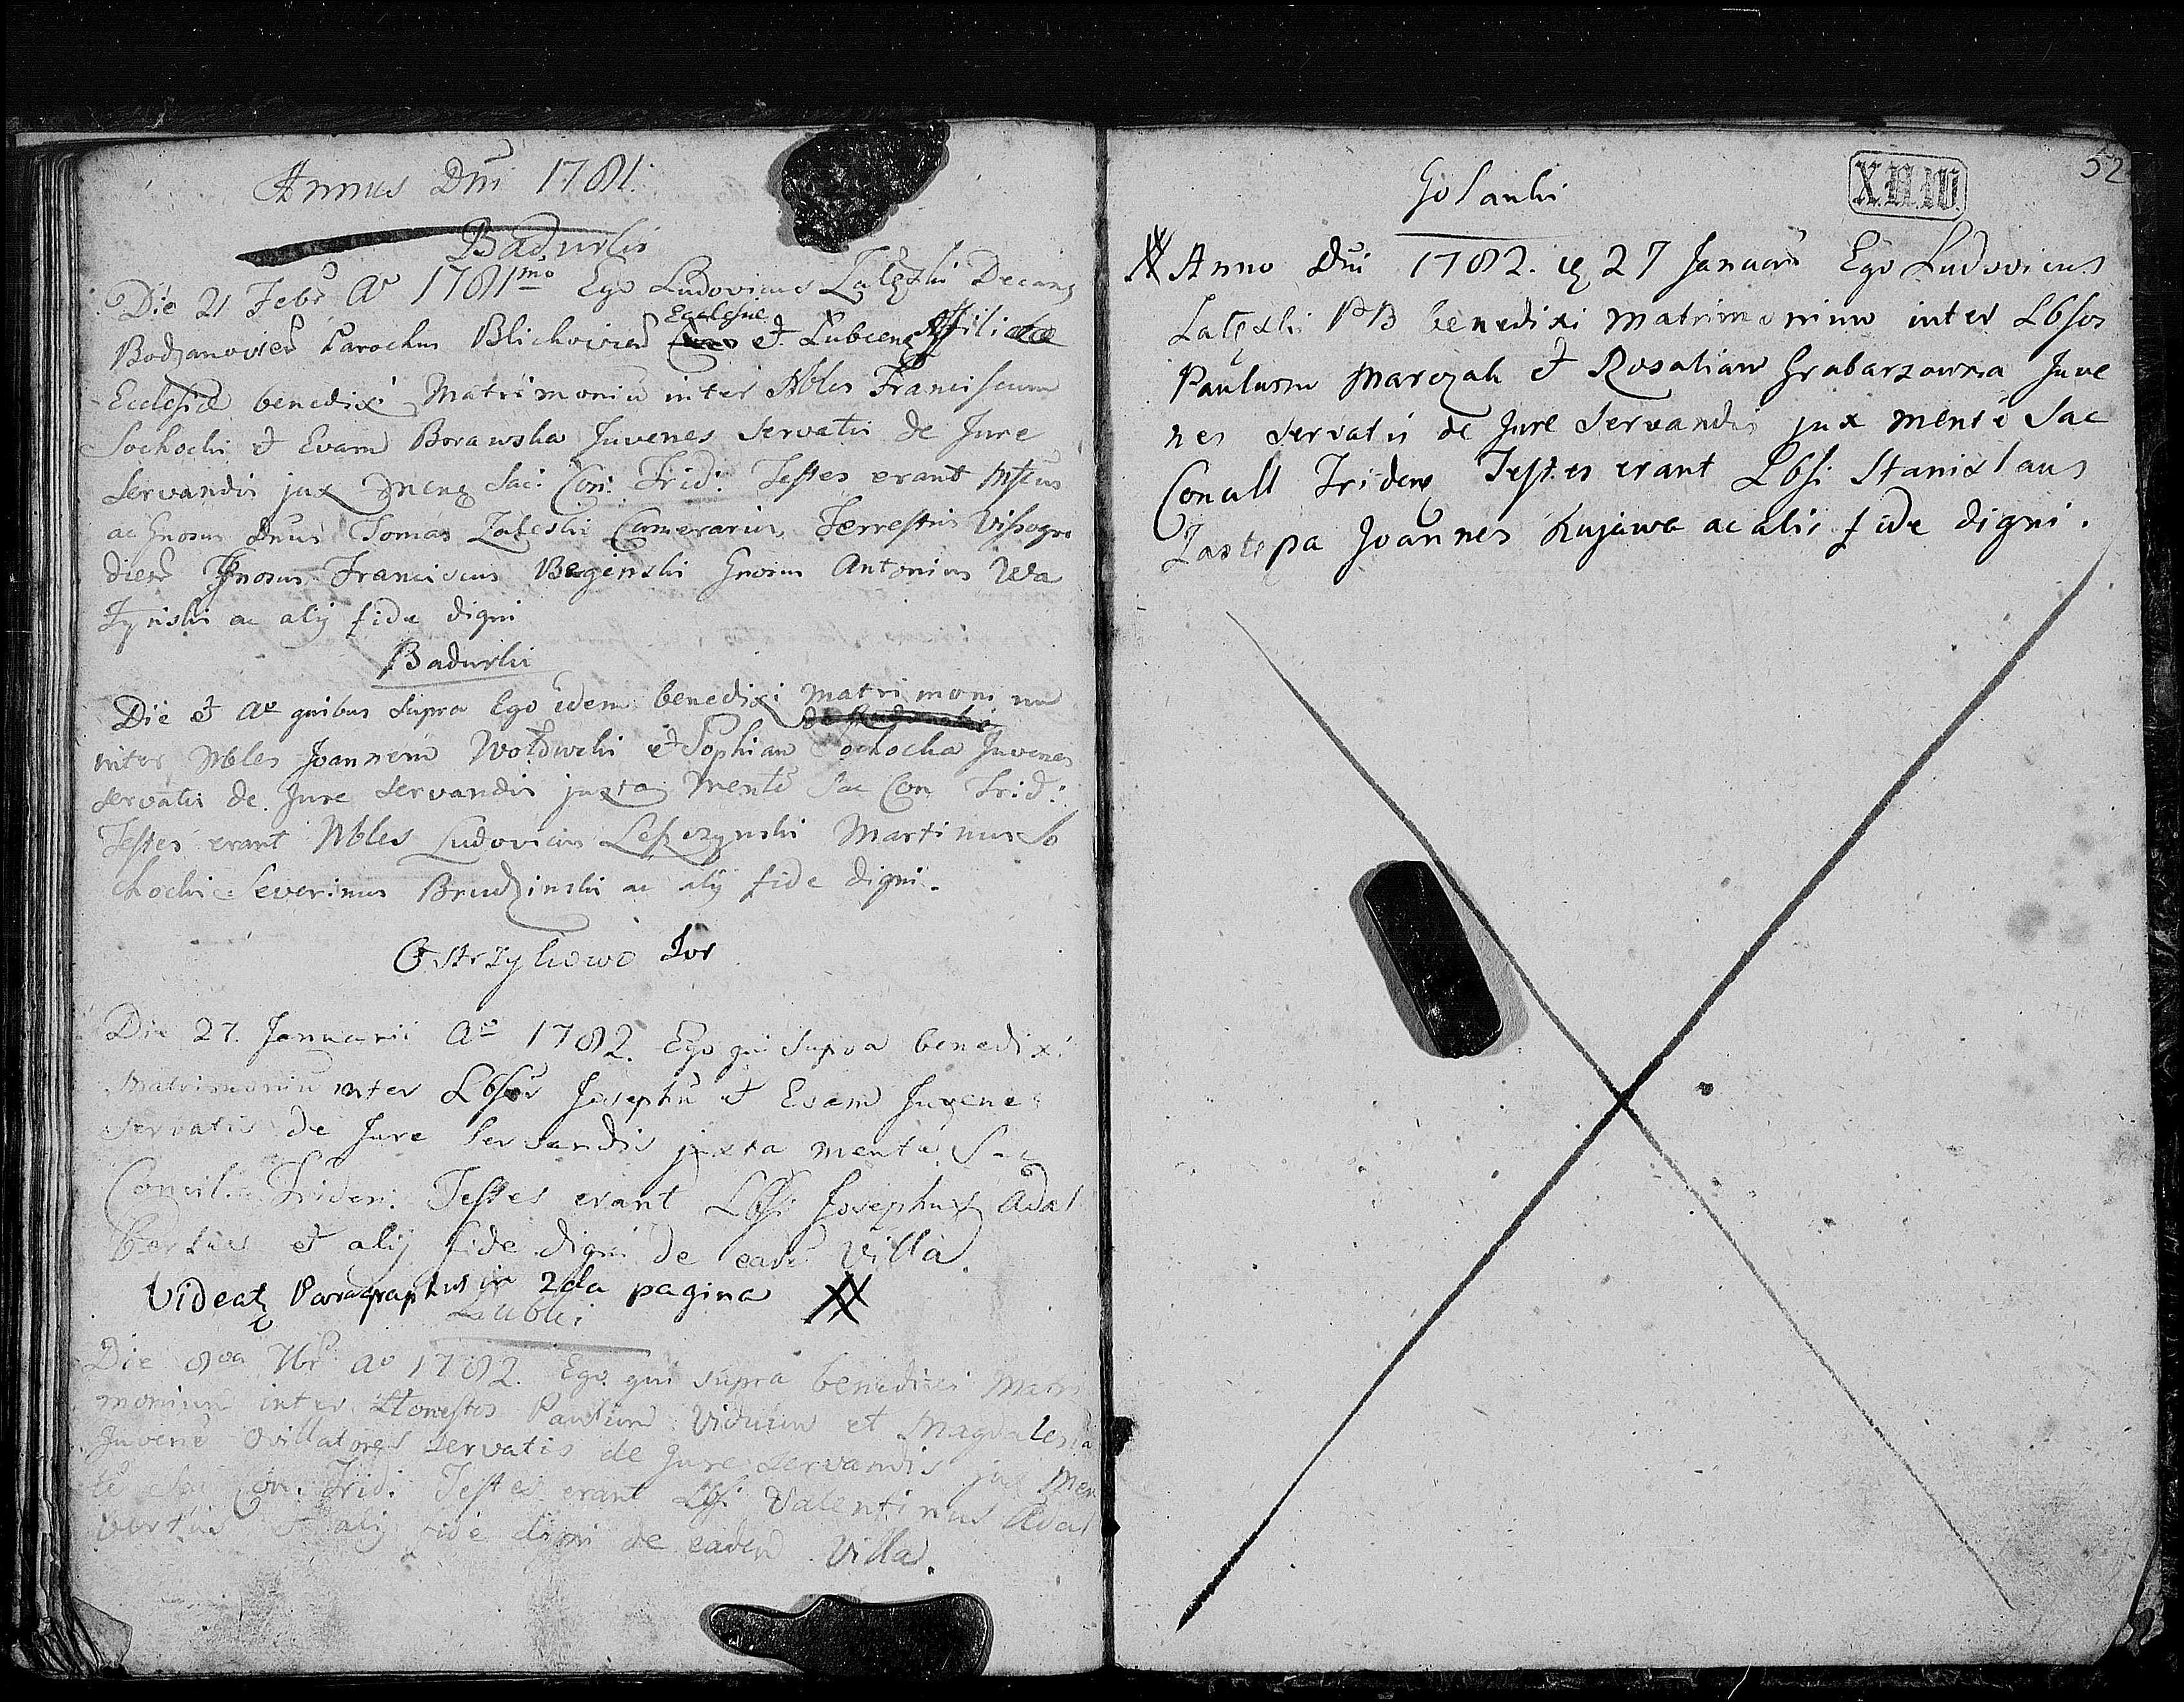 Annus Dni 1781.
Badurki
Die 21 Febr Ao 1781mo Ego Ludovicus Załęski Decang
Ecclesiæ
Bodzanovien Parochus Blichovien et Łubien Affiliatæ
Ecclesiæ benedixi Matrimoniū inter Nbles Franciscum
Sochocki et Evam Borawska Juvenes Servatis de Jure
Servandis jux Meng Sac: Con: Trid: Testes erant Mfcus
ac Gnosus Dnus Tomas Zaleski Camerarius Terrestris Vissogro
dien Gnosus Franciscus Bagienski Gnosus Antonius Wa
Tynski ac alij fide digni
Badurki
Die et Ao quibus supra Ego idem benedixi Matrimonium
inter Nbles Joannem Wołdwski et Sophiam Sochocka Juvenes
servatis de Jure Servandis juxta Mentē Sac Con Trid:
Testes erant Nbles Ludovicus Leszczynski Martinus So
chocki Severinus Brudzinski ac alij fide digni.
Ostrzykowo Jor
Die 27. Januarii Ao 1782. Ego qui Supra benedixi
Matrimoniū inter Lbsos Josephū et Evam Juvenes
Servatis de Jure Servandis juxta mentē Sac
Concil: Triden: Testes erant Lbsi Josephus Adal
bertus et alij fide digni de eade Villa.
Videatz Paragraphus in 2da pagina XX
Łubki
Die 8va Nbr Ao 1782. Ego qui supra benedixi Matri
monium inter Honestos Paulum Viduum et Magdalenā
Juvenē Servatis de Jure Servandis jux Men
tē Sac Con: Trid: Testes erant Lbsi Valentinus Adal
bertus et alij fide digni de eadem Villa.
52
Golanki
X.II.IV.
XX Anno Dni 1782. 27 Januarii Ego Ludovicus
Załęski PB benedixi Matrimonium inter Lbsos
Paulum Marczak et Rosaliam Grabarzowna Juve
nes servatis de Jure Servandis jux mentē Sac
Concill Trideng Testes erant Lbsi Stanislaus
Zastepa Joannes Kujawa ac alii fide digni.